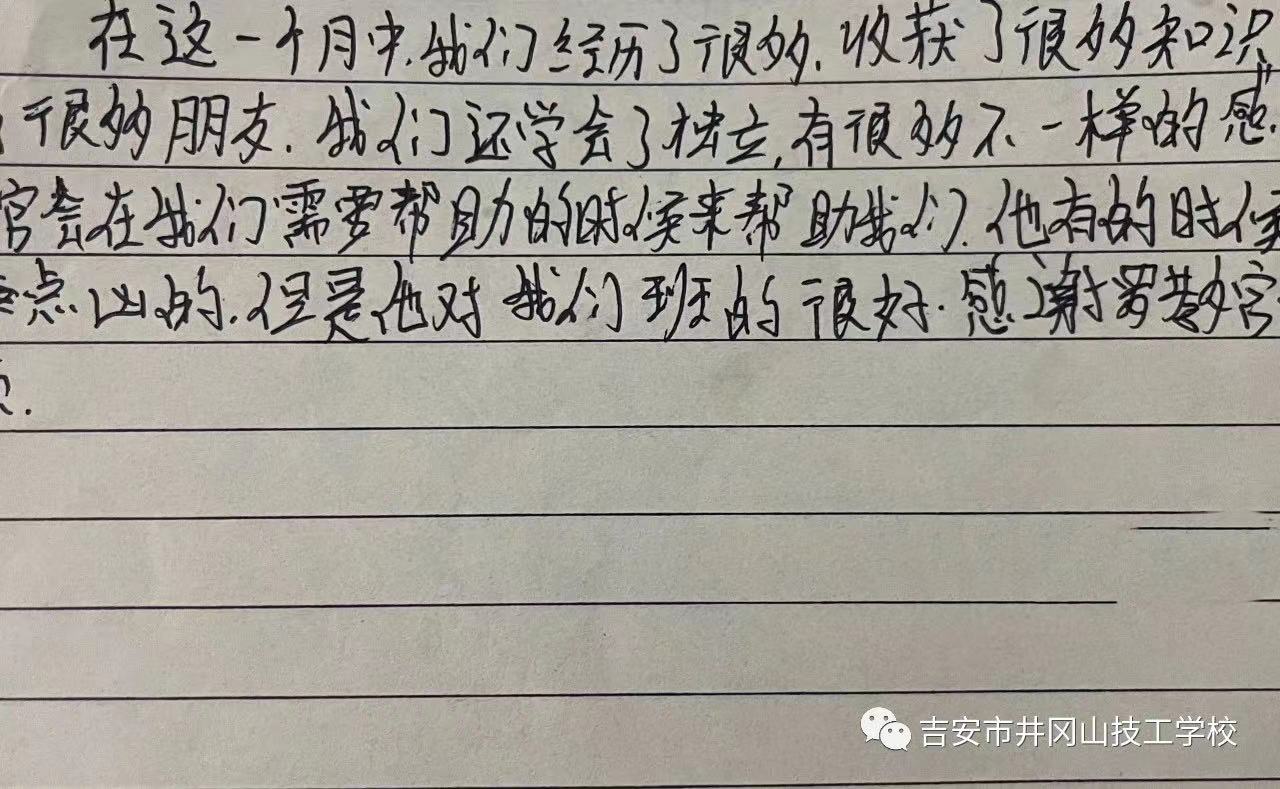 在这一个月中.我们经历了很多.收获了很多知识
很多朋友.我们还学会了独立,有很多不一样的感.
官会在我们需要帮助的时候来帮助我们.他有的时候
点凶的.但是他对我们班的很好.感谢罗教官
吉安市井冈山技工学校